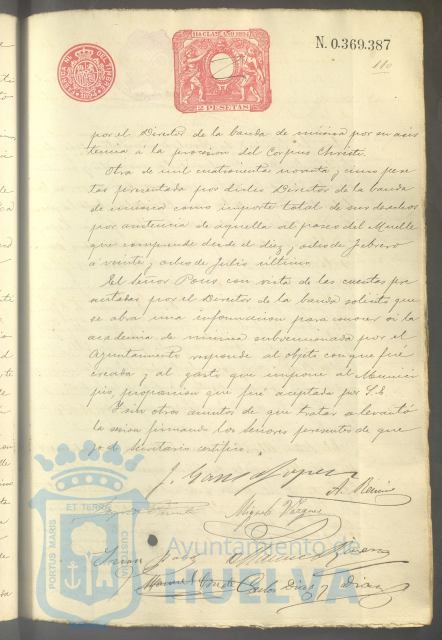 11ª CLASE AÑO 1894
N. 0.369.387
110
2 PESETAS
por el Director de la banda de música por su asis
tencia á la procesion del Corpus Christi.
Otra de mil cuatrocientas noventa y cinco pese
tas presentada por dicho Director de la banda
de música como importe total de sus derechos
por asistencia de aquella al paseo del Muelle
que comprende desde el diez y ocho de Febrero
á veinte y ocho de Julio último.
El Señor Pons, con vista de las cuentas pre
sentadas por el Director de la banda solicita que
se abra una informacion para conocer si la
academia de música subvencionada por el
Ayuntamiento responde al objeto con que fué
creada y al gasto que impone al Munici
pio, proposicion que fué aceptada por S.E
Y sin otros asuntos de que tratar se levantó
la sesion firmando los señores presentes de que
yo el Secretario certifico.
J. Lopez
A.
Miguel Vazquez
Manuel
Carlos Diaz y Diaz
PORTUS MARIS ET TERRE CUSTODIA
Ayuntamiento de
HUELVA